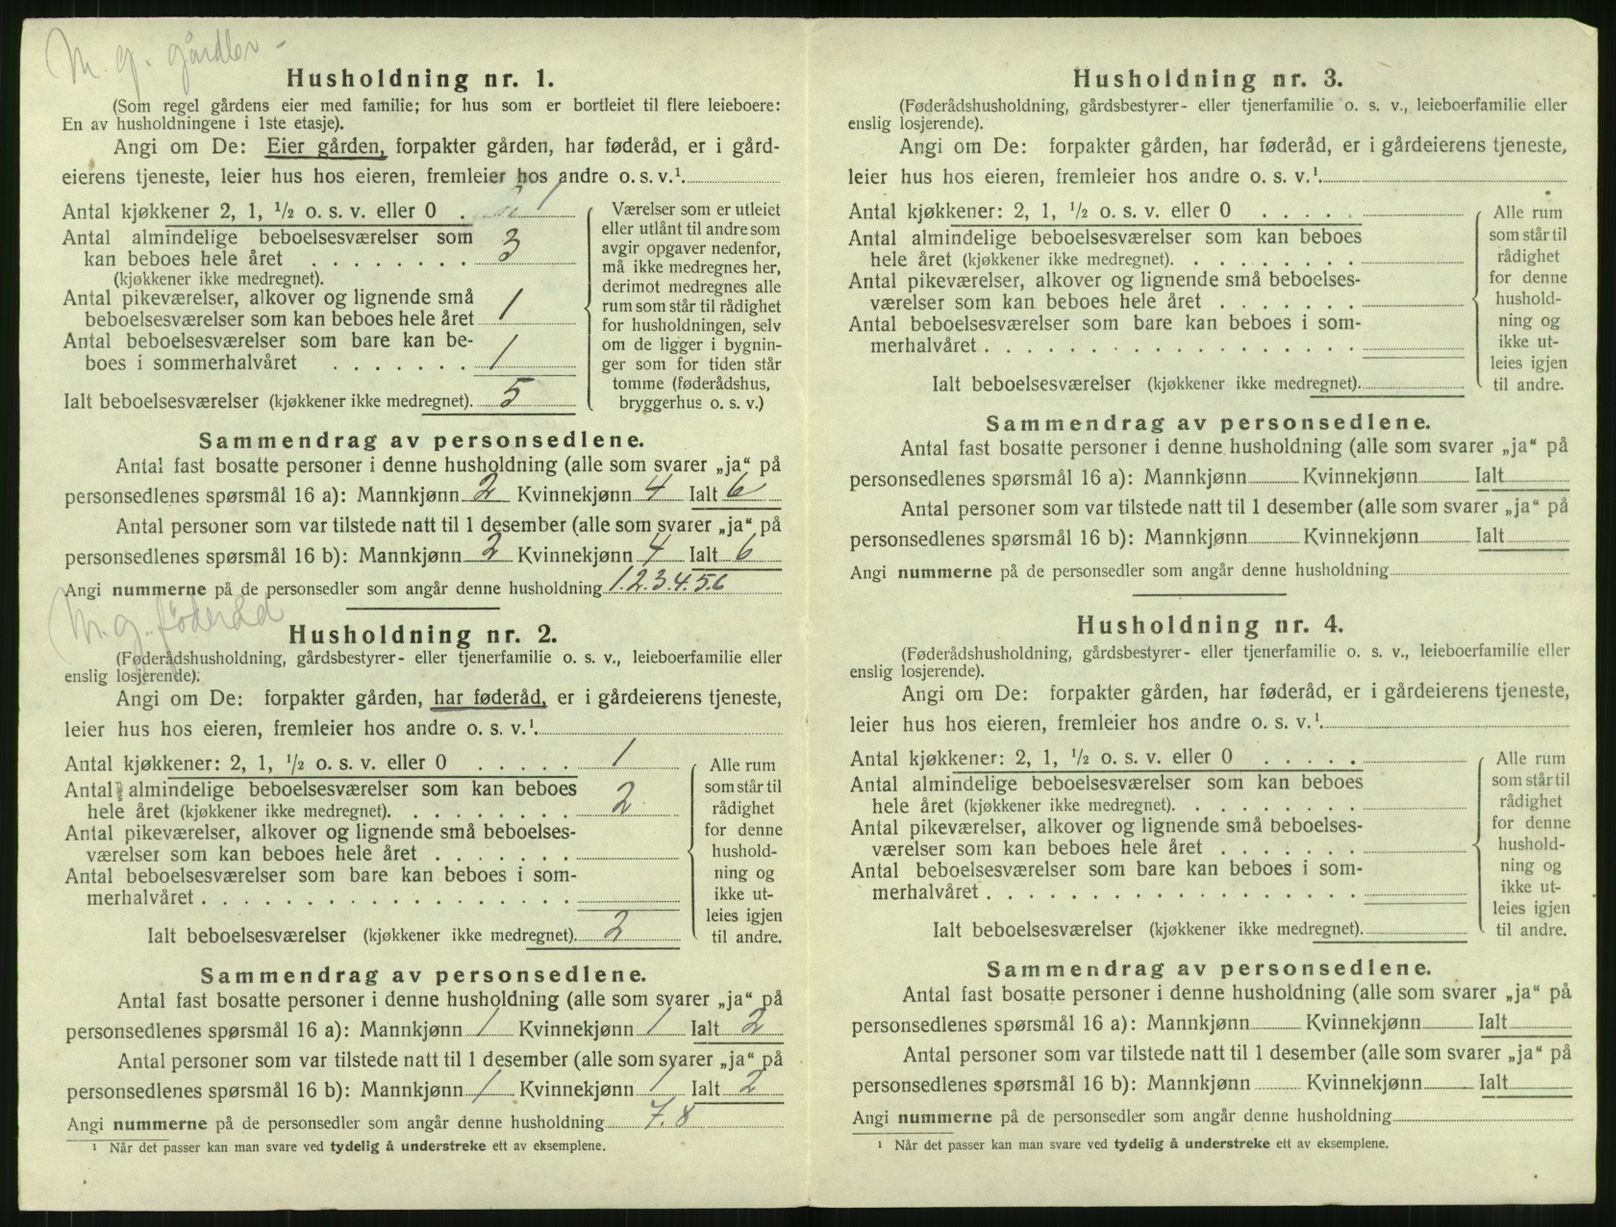 M. g. gårdbr -
Husholdning nr. 1.
(Som regel gårdens eier med familie; for hus som er bortleiet til flere leieboere:
En av husholdningene i 1ste etasje).
Angi om De: Eier gården, forpakter gården, har føderåd, er i gård-
eierens tjeneste, leier hus hos eieren, fremleier hos andre o. s. v.¹
Antal kjøkkener 2, 1, ½ o. s. v. eller 0 . 1
Antal almindelige beboelsesværelser som
kan beboes hele året . . . . . . . . 3
(kjøkkener ikke medregnet).
Antal pikeværelser, alkover og lignende små
beboelsesværelser som kan beboes hele året 1
Antal beboelsesværelser som bare kan be-
boes i sommerhalvåret . . . . . . . 1
Ialt beboelsesværelser (kjøkkener ikke medregnet). 5
Værelser som er utleiet
eller utlånt til andre som
avgir opgaver nedenfor,
må ikke medregnes her,
derimot medregnes alle
rum som står til rådighet
for husholdningen, selv
om de ligger i bygnin-
ger som for tiden står
tomme (føderådshus,
bryggerhus o. s. v.)
Sammendrag av personsedlene.
Antal fast bosatte personer i denne husholdning (alle som svarer „ja“ på
personsedlenes spørsmål 16 a): Mannkjønn 2 Kvinnekjønn 4 Ialt 6
Antal personer som var tilstede natt til 1 desember (alle som svarer „ja“ på
personsedlenes spørsmål 16 b): Mannkjønn 2 Kvinnekjønn 4 Ialt 6
Angi nummerne på de personsedler som angår denne husholdning 1.2.3.4.5.6
M. g. føderåd
Husholdning nr. 2.
(Føderådshusholdning, gårdsbestyrer- eller tjenerfamilie o. s. v., leieboerfamilie eller
enslig losjerende).
Angi om De: forpakter gården, har føderåd, er i gårdeierens tjeneste,
leier hus hos eieren, fremleier hos andre o. s. v.¹
Antal kjøkkener: 2, 1, ½ o. s. v. eller 0 . . . . . 1
Antal almindelige beboelsesværelser som kan beboes
hele året (kjøkkener ikke medregnet). . . . . . . . . 2
Antal pikeværelser, alkover og lignende små beboelses-
værelser som kan beboes hele året . . . . . . .
Antal beboelsesværelser som bare kan beboes i som-
merhalvåret . . . . . . . . . . . . . . . . . .
Ialt beboelsesværelser (kjøkkener ikke medregnet). 2
Alle rum
som står til
rådighet
for denne
hushold-
ning og
ikke ut-
leies igjen
til andre.
Sammendrag av personsedlene.
Antal fast bosatte personer i denne husholdning (alle som svarer „ja“ på
personsedlenes spørsmål 16 a): Mannkjønn 1 Kvinnekjønn 1 Ialt 2
Antal personer som var tilstede natt til 1 desember (alle som svarer „ja“ på
personsedlenes spørsmål 16 b): Mannkjønn 1 Kvinnekjønn 1 Ialt 2
Angi nummerne på de personsedler som angår denne husholdning 7.8
¹ Når det passer kan man svare ved tydelig å understreke ett av eksemplene.
Husholdning nr. 3.
(Føderådshusholdning, gårdsbestyrer- eller tjenerfamilie o. s. v., leieboerfamilie eller
enslig losjerende).
Angi om De: forpakter gården, har føderåd, er i gårdeierens tjeneste,
leier hus hos eieren, fremleier hos andre o. s. v.¹
Antal kjøkkener: 2, 1, ½ o. s. v. eller 0 . . . . .
Antal almindelige beboelsesværelser som kan beboes
hele året (kjøkkener ikke medregnet). . . . . . . . .
Antal pikeværelser, alkover og lignende små beboelses-
værelser som kan beboes hele året . . . . . . .
Antal beboelsesværelser som bare kan beboes i som-
merhalvåret . . . . . . . . . . . . . . . . . .
Ialt beboelsesværelser (kjøkkener ikke medregnet).
Alle rum
som står til
rådighet
for denne
hushold-
ning og
ikke ut-
leies igjen
til andre.
Sammendrag av personsedlene.
Antal fast bosatte personer i denne husholdning (alle som svarer „ja“ på
personsedlenes spørsmål 16 a): Mannkjønn Kvinnekjønn Ialt
Antal personer som var tilstede natt til 1 desember (alle som svarer „ja“ på
personsedlenes spørsmål 16 b): Mannkjønn Kvinnekjønn Ialt
Angi nummerne på de personsedler som angår denne husholdning
Husholdning nr. 4.
(Føderådshusholdning, gårdsbestyrer- eller tjenerfamilie o. s. v., leieboerfamilie eller
enslig losjerende).
Angi om De: forpakter gården, har føderåd, er i gårdeierens tjeneste,
leier hus hos eieren, fremleier hos andre o. s. v.¹
Antal kjøkkener: 2, 1, ½ o. s. v. eller 0 . . . . .
Antal almindelige beboelsesværelser som kan beboes
hele året (kjøkkener ikke medregnet). . . . . . . . .
Antal pikeværelser, alkover og lignende små beboelses-
værelser som kan beboes hele året . . . . . . .
Antal beboelsesværelser som bare kan beboes i som-
merhalvåret . . . . . . . . . . . . . . . . . .
Ialt beboelsesværelser (kjøkkener ikke medregnet).
Alle rum
som står til
rådighet
for denne
hushold-
ning og
ikke ut-
leies igjen
til andre.
Sammendrag av personsedlene.
Antal fast bosatte personer i denne husholdning (alle som svarer „ja“ på
personsedlenes spørsmål 16 a): Mannkjønn Kvinnekjønn Ialt
Antal personer som var tilstede natt til 1 desember (alle som svarer „ja“ på
personsedlenes spørsmål 16 b): Mannkjønn Kvinnekjønn Ialt
Angi nummerne på de personsedler som angår denne husholdning
¹ Når det passer kan man svare ved tydelig å understreke ett av eksemplene.